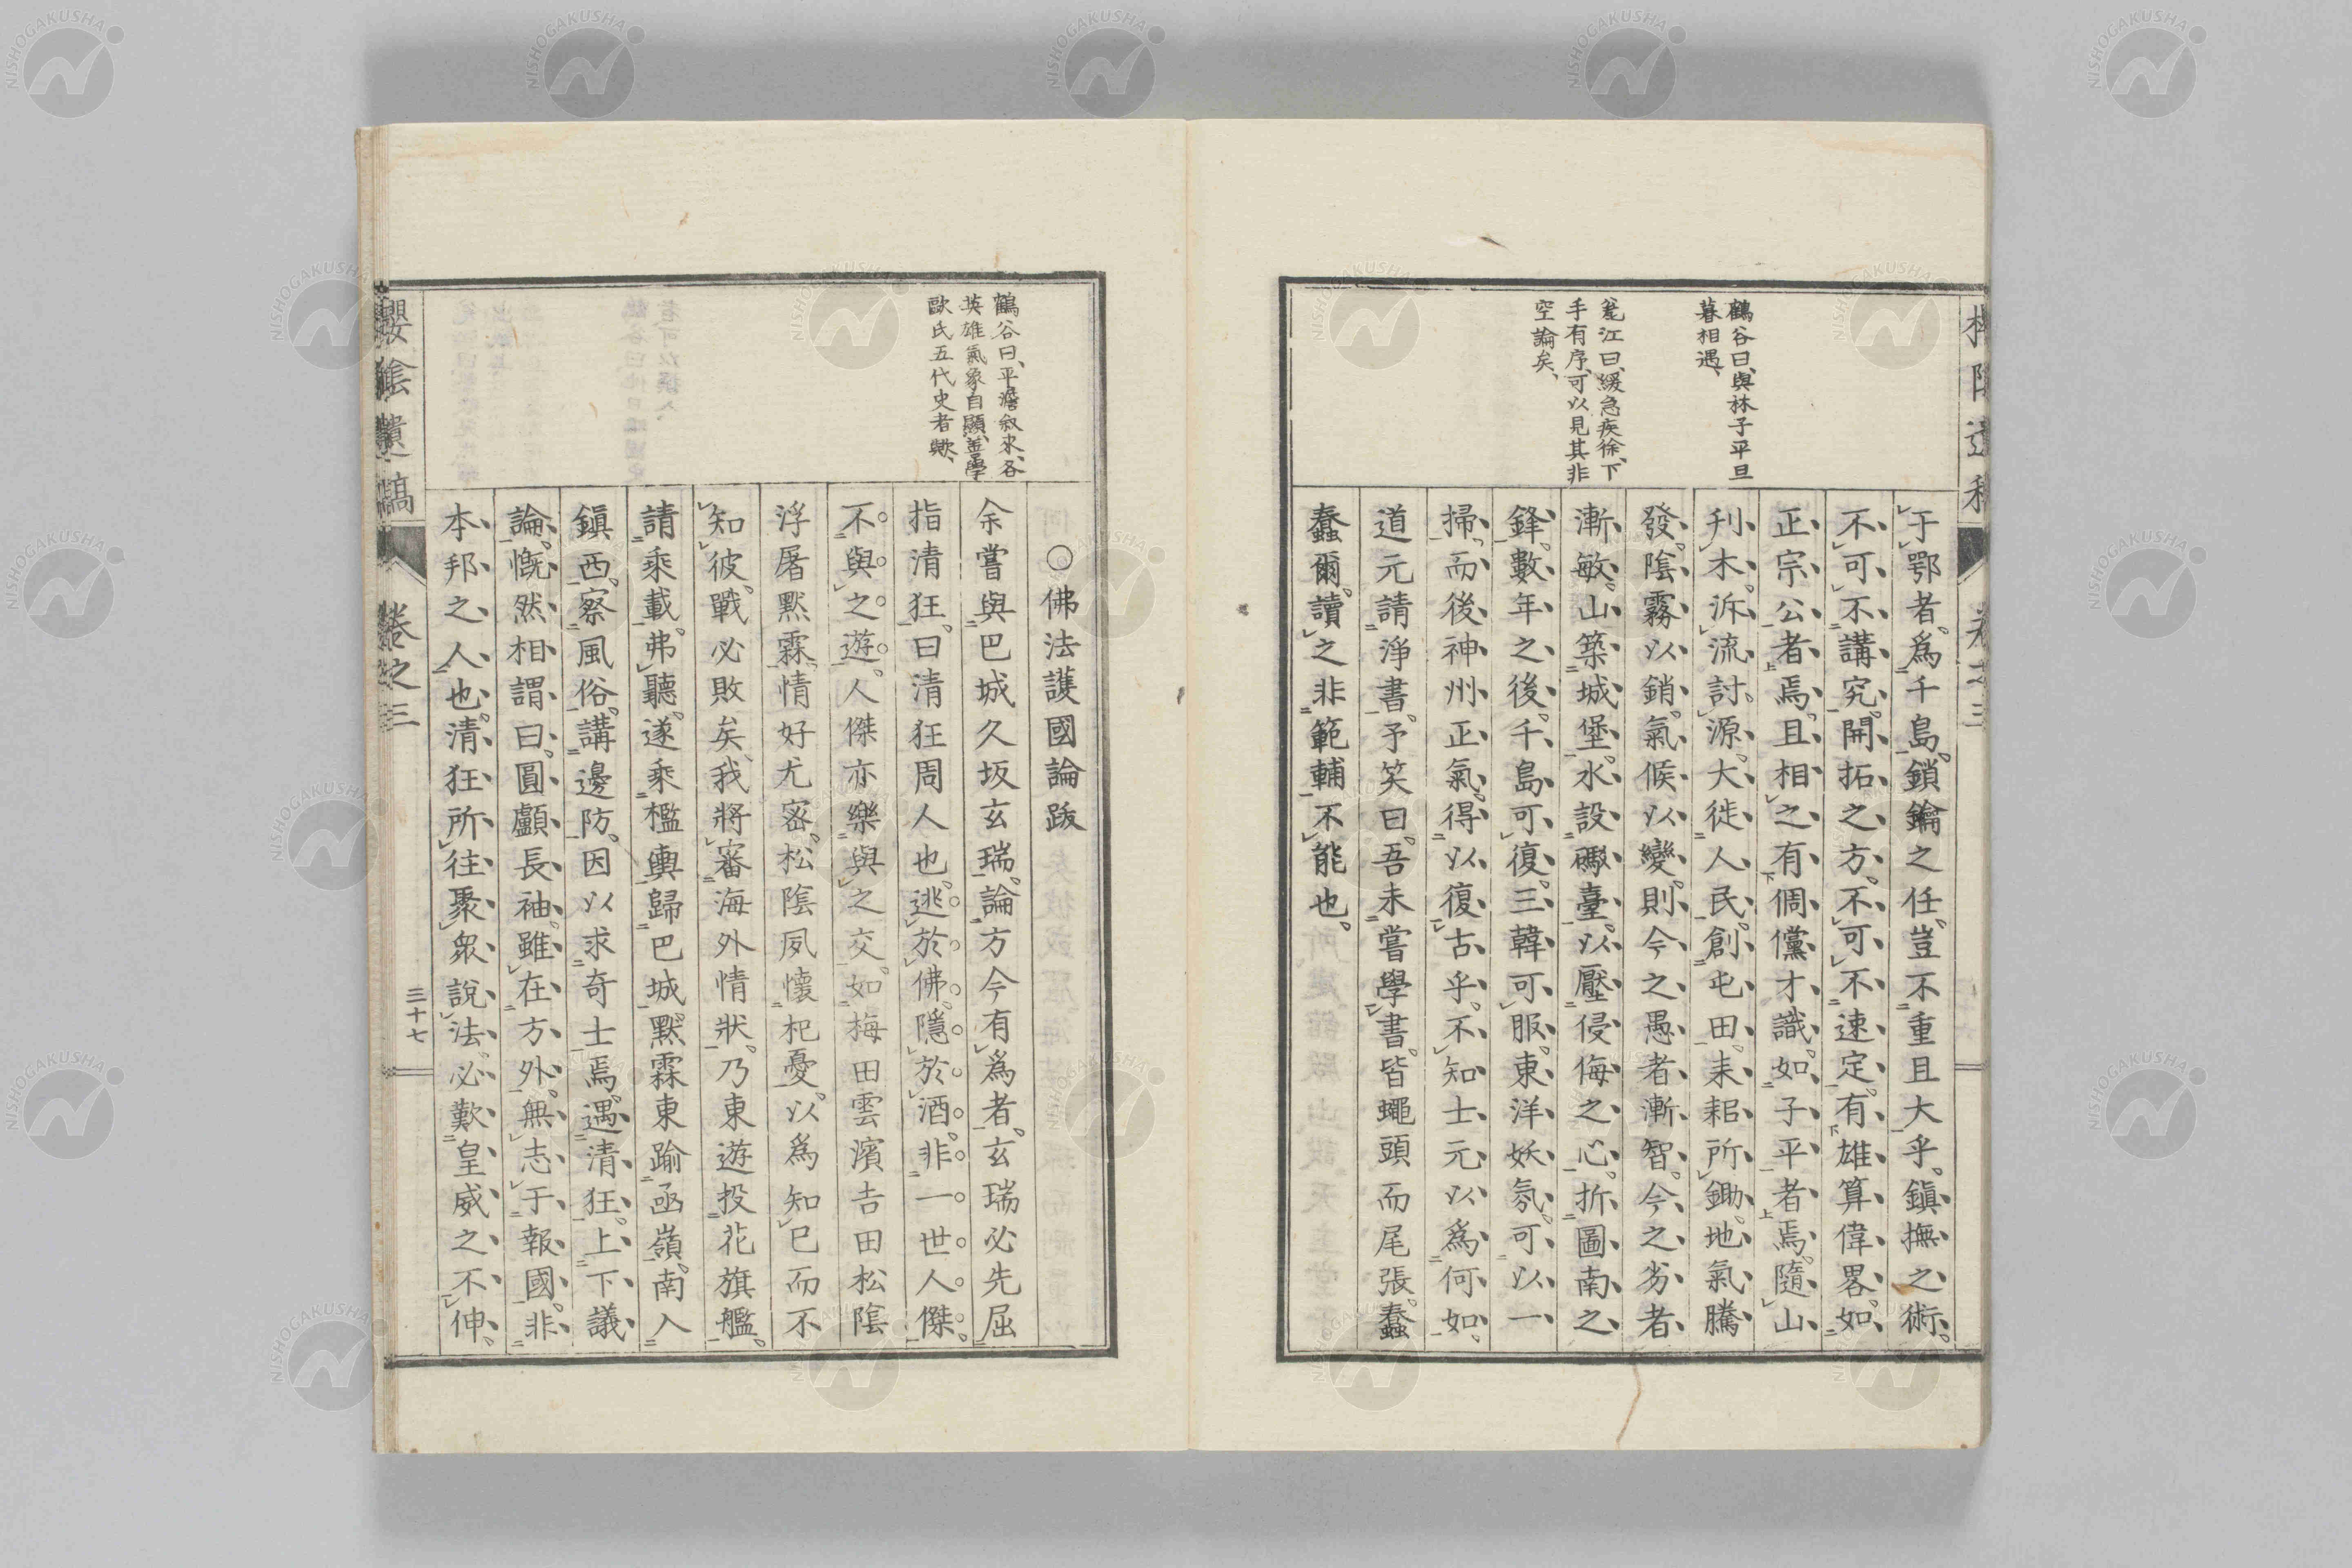 鶴谷曰、與林子平旦
暮相遇、
甕江曰、緩急疾徐、下
手有序、可以見其非
空論矣、
于鄂者。爲千島。鎖鑰之任。豈不重且大乎。鎮撫之術。
不可不講究。開拓之方。不可不速定。有雄算偉畧。如
正宗公者焉。且相之有倜儻才識。如子平者焉。隨山
刋木。泝流討源。大徙人民。創屯田。耒耜所鋤。地氣騰
發。陰霧以銷。氣候以變。則今之愚者漸智。今之劣者
漸敏。山築城堡。水設礮臺。以壓侵侮之心。折圖南之
鋒。數年之後。千島可復。三韓可服。東洋妖氛。可以一
掃。而後神州正氣。得以復古乎。不知士元以爲何如。
道元請淨書。予笑曰。吾未嘗學書。皆蠅頭而尾張。蠢
蠢爾。讀之非範輔不能也。
鶴谷曰、平澹敘來、各
英雄氣象自顯、並學
歐氏五代史者歟、
〇佛法護國論跋
余嘗與巴城久坂玄瑞。論方今有爲者。玄瑞必先屈
指清狂。曰清狂周人也。逃於佛。隱於酒。非一世人傑。
不與之遊。人傑亦樂與之交。如梅田雲濱吉田松陰
浮屠黙霖。情好尤密。松陰夙懷杞憂。以爲知己而不
知彼。戰必敗矣、我將審海外情狀。乃東遊投花旗艦。
請乘載。弗聽。遂乘檻輿歸巴城。黙霖東踰函嶺。南入
鎭西。察風俗。講邊防。因以求奇士焉。遇清狂。上下議
論。慨然相謂曰。圓顱長袖。雖在方外。無志于報國。非
本邦之人也。清狂所往聚衆說法。必歎皇威之不伸。
櫻陰遺稿
卷之三
三十七